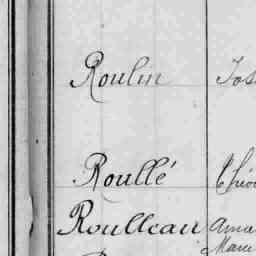 Roulin Jos
Roullé Théo
Roulleau Ama
Marie